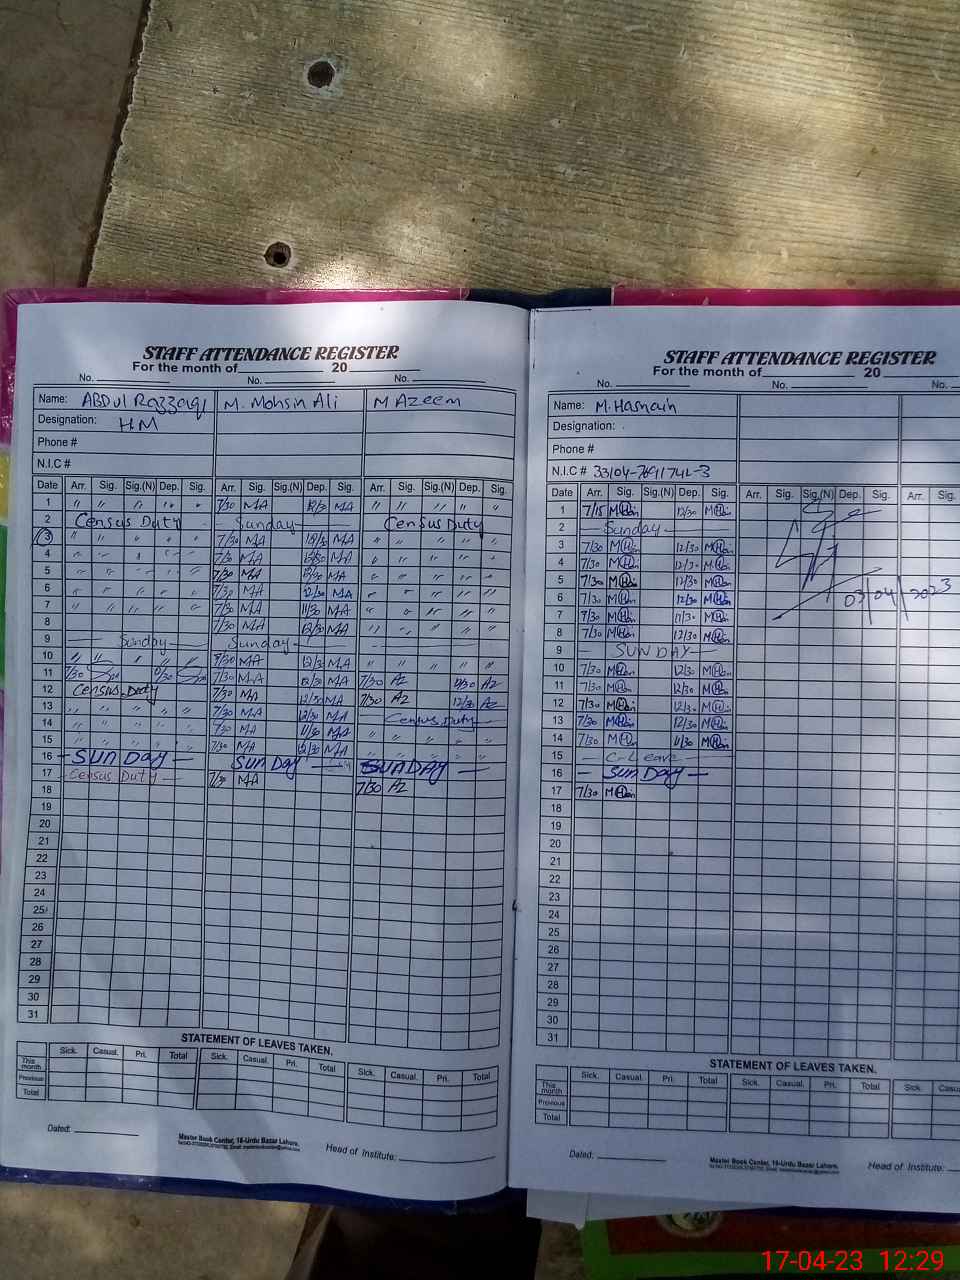 STAFF ATTENDANCE REGISTER
For the month of 20
No. No. No.
Name: ABDUL Razzaq M. Mohsin Ali M Azeem
Designation: H.M
Phone #
N.I.C #
Date Arr. Sig. Sig.(N) Dep. Sig. Arr. Sig. Sig.(N) Dep. Sig. Arr. Sig. Sig.(N) Dep. Sig.
1 " " " " " 7/30 MA 12/30 MA " " " " "
2 Census Duty Sunday Census Duty
3 " " " " " 7/30 MA 12/30 MA " " " " "
4 " " " " " 7/30 MA 12/30 MA " " " " "
5 " " " " " 7/30 MA 12/30 MA " " " " "
6 " " " " " 7/30 MA 12/30 MA " " " " "
7 " " " " " 7/30 MA 11/30 MA " " " " "
8 7/30 MA 12/30 MA " " " " "
9 Sunday Sunday
10 " " " " 7/30 MA 12/30 MA " " " " "
11 7/30 7/30 MA 12/30 MA 7/30 AZ 12/30 AZ
12 Census Duty 7/30 MA 12/30 MA 7/30 AZ 12/30 AZ
13 " " " " " 7/30 MA 12/30 MA Census Duty
14 " " " " " 7/30 MA 11/30 MA
15 " " " " " 7/30 MA 12/30 MA " " " "
16 - SUN Day - SUN Day - SUNDAY -
17 - Census Duty - 7/30 MA 7/30 AZ
18
19
20
21
22
23
24
25
26
27
28
29
30
31
STATEMENT OF LEAVES TAKEN.
Sick. Casual. Pri. Total Sick. Casual. Pri. Total Sick. Casual. Pri. Total
This month
Previous
Total
Dated:
Master Book Center, 16-Urdu Bazar Lahore.
Head of Institute:
STAFF ATTENDANCE REGISTER
For the month of 20
No. No. No.
Name: M. Hasnain
Designation:
Phone #
N.I.C #
Date Arr. Sig. Sig.(N) Dep. Sig. Arr. Sig. Sig.(N) Dep. Sig. Arr. Sig.
1 7/15 12/30
2 Sunday
3 7/30 12/30
4 7/30 12/30
5 7/30 12/30
6 7/30 12/30
03/04/2023
7 7/30 11/30
8 7/30 12/30
9 - SUNDAY -
10 7/30 12/30
11 7/30 12/30
12 7/30 12/30
13 7/30 12/30
14 7/30 11/30
15 - C-Leave
16 - Sun Day -
17 7/30
18
19
20
21
22
23
24
25
26
27
28
29
30
31
STATEMENT OF LEAVES TAKEN.
Sick. Casual. Pri. Total Sick. Casual. Pri. Total Sick.
This month
Previous
Total
Dated:
Master Book Center, 16-Urdu Bazar Lahore.
Head of Institute:
17-04-23 12:29